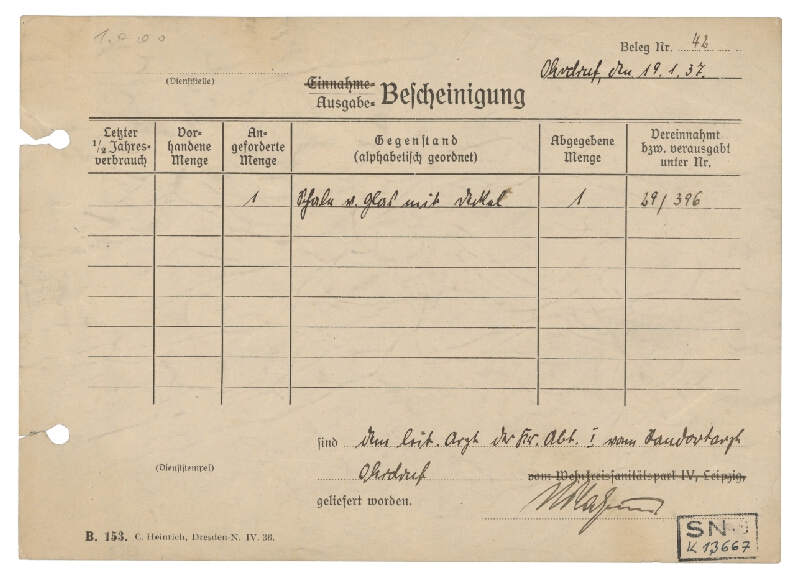 Beleg Nr. 42
Ohrdruf, den 19.1.37.
(Dienststelle)
Einnahme-
Ausgabe- Bescheinigung
Letzter 1/2 Jahres-verbrauch | Vor-handene Menge | An-geforderte Menge | Gegenstand (alphabetisch geordnet) | Abgegebene Menge | Vereinnahmt bzw. verausgabt unter Nr.
1 Schale v. Glas mit Deckel 1 29/396
sind dem leit. Arzt der Kr. Abt. I vom Standortarzt
(Dienststempel)
Ohrdruf
vom Wehrkreissanitätspark IV, Leipzig,
geliefert worden.
SN
K 13667
B. 153. C. Heinrich, Dresden-N. IV. 36.